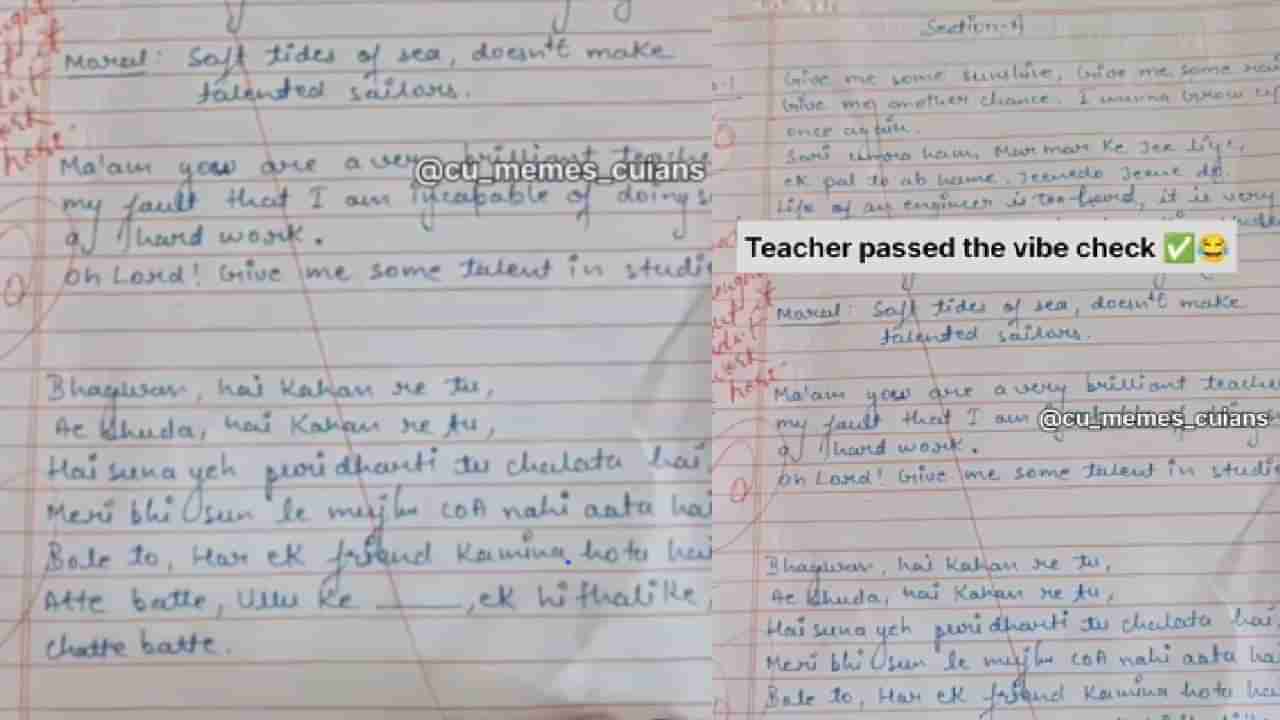 Moral: Soft tides of sea, doesn't make
talented sailors.
Ma'am you are a very brilliant teache
my fault that I am incapable of doing s
a hard work.
Oh Lord! Give me some talent in studi
Bhagwan, hai Kahan re tu,
Ae khuda, hai Kahan re tu,
Hai suna yeh puri dharti tu chalata hai
Meri bhi sun le mujhe COA nahi aata hai
Bole to, Har ek friend Kamina hota hai
Atte batte, Ullu ke ____, ek hi thali ke,
chatte batte.
@cu_memes_cuians
Section-A
Give me some sunshine, Give me some rai
Give me another chance. I wanna Grow up
once again.
Sari umra ham, Mar mar ke Jee liye,
ek pal to ab hame, Jeenedo Jeene do.
Life of an engineer is too hard, it is very
Teacher passed the vibe check ✅😂
Moral: Soft tides of sea, doesn't make
talented sailors.
Ma'am you are a very brilliant teache
my fault that I am
@cu_memes_cuians
a hard work.
Oh Lord! Give me some talent in studi
Bhagwan, hai Kahan re tu,
Ae khuda, hai Kahan re tu,
Hai suna yeh puri dharti tu chalata hai
Meri bhi sun le mujhe COA nahi aata hai
Bole to, Har ek friend Kamina hota hai